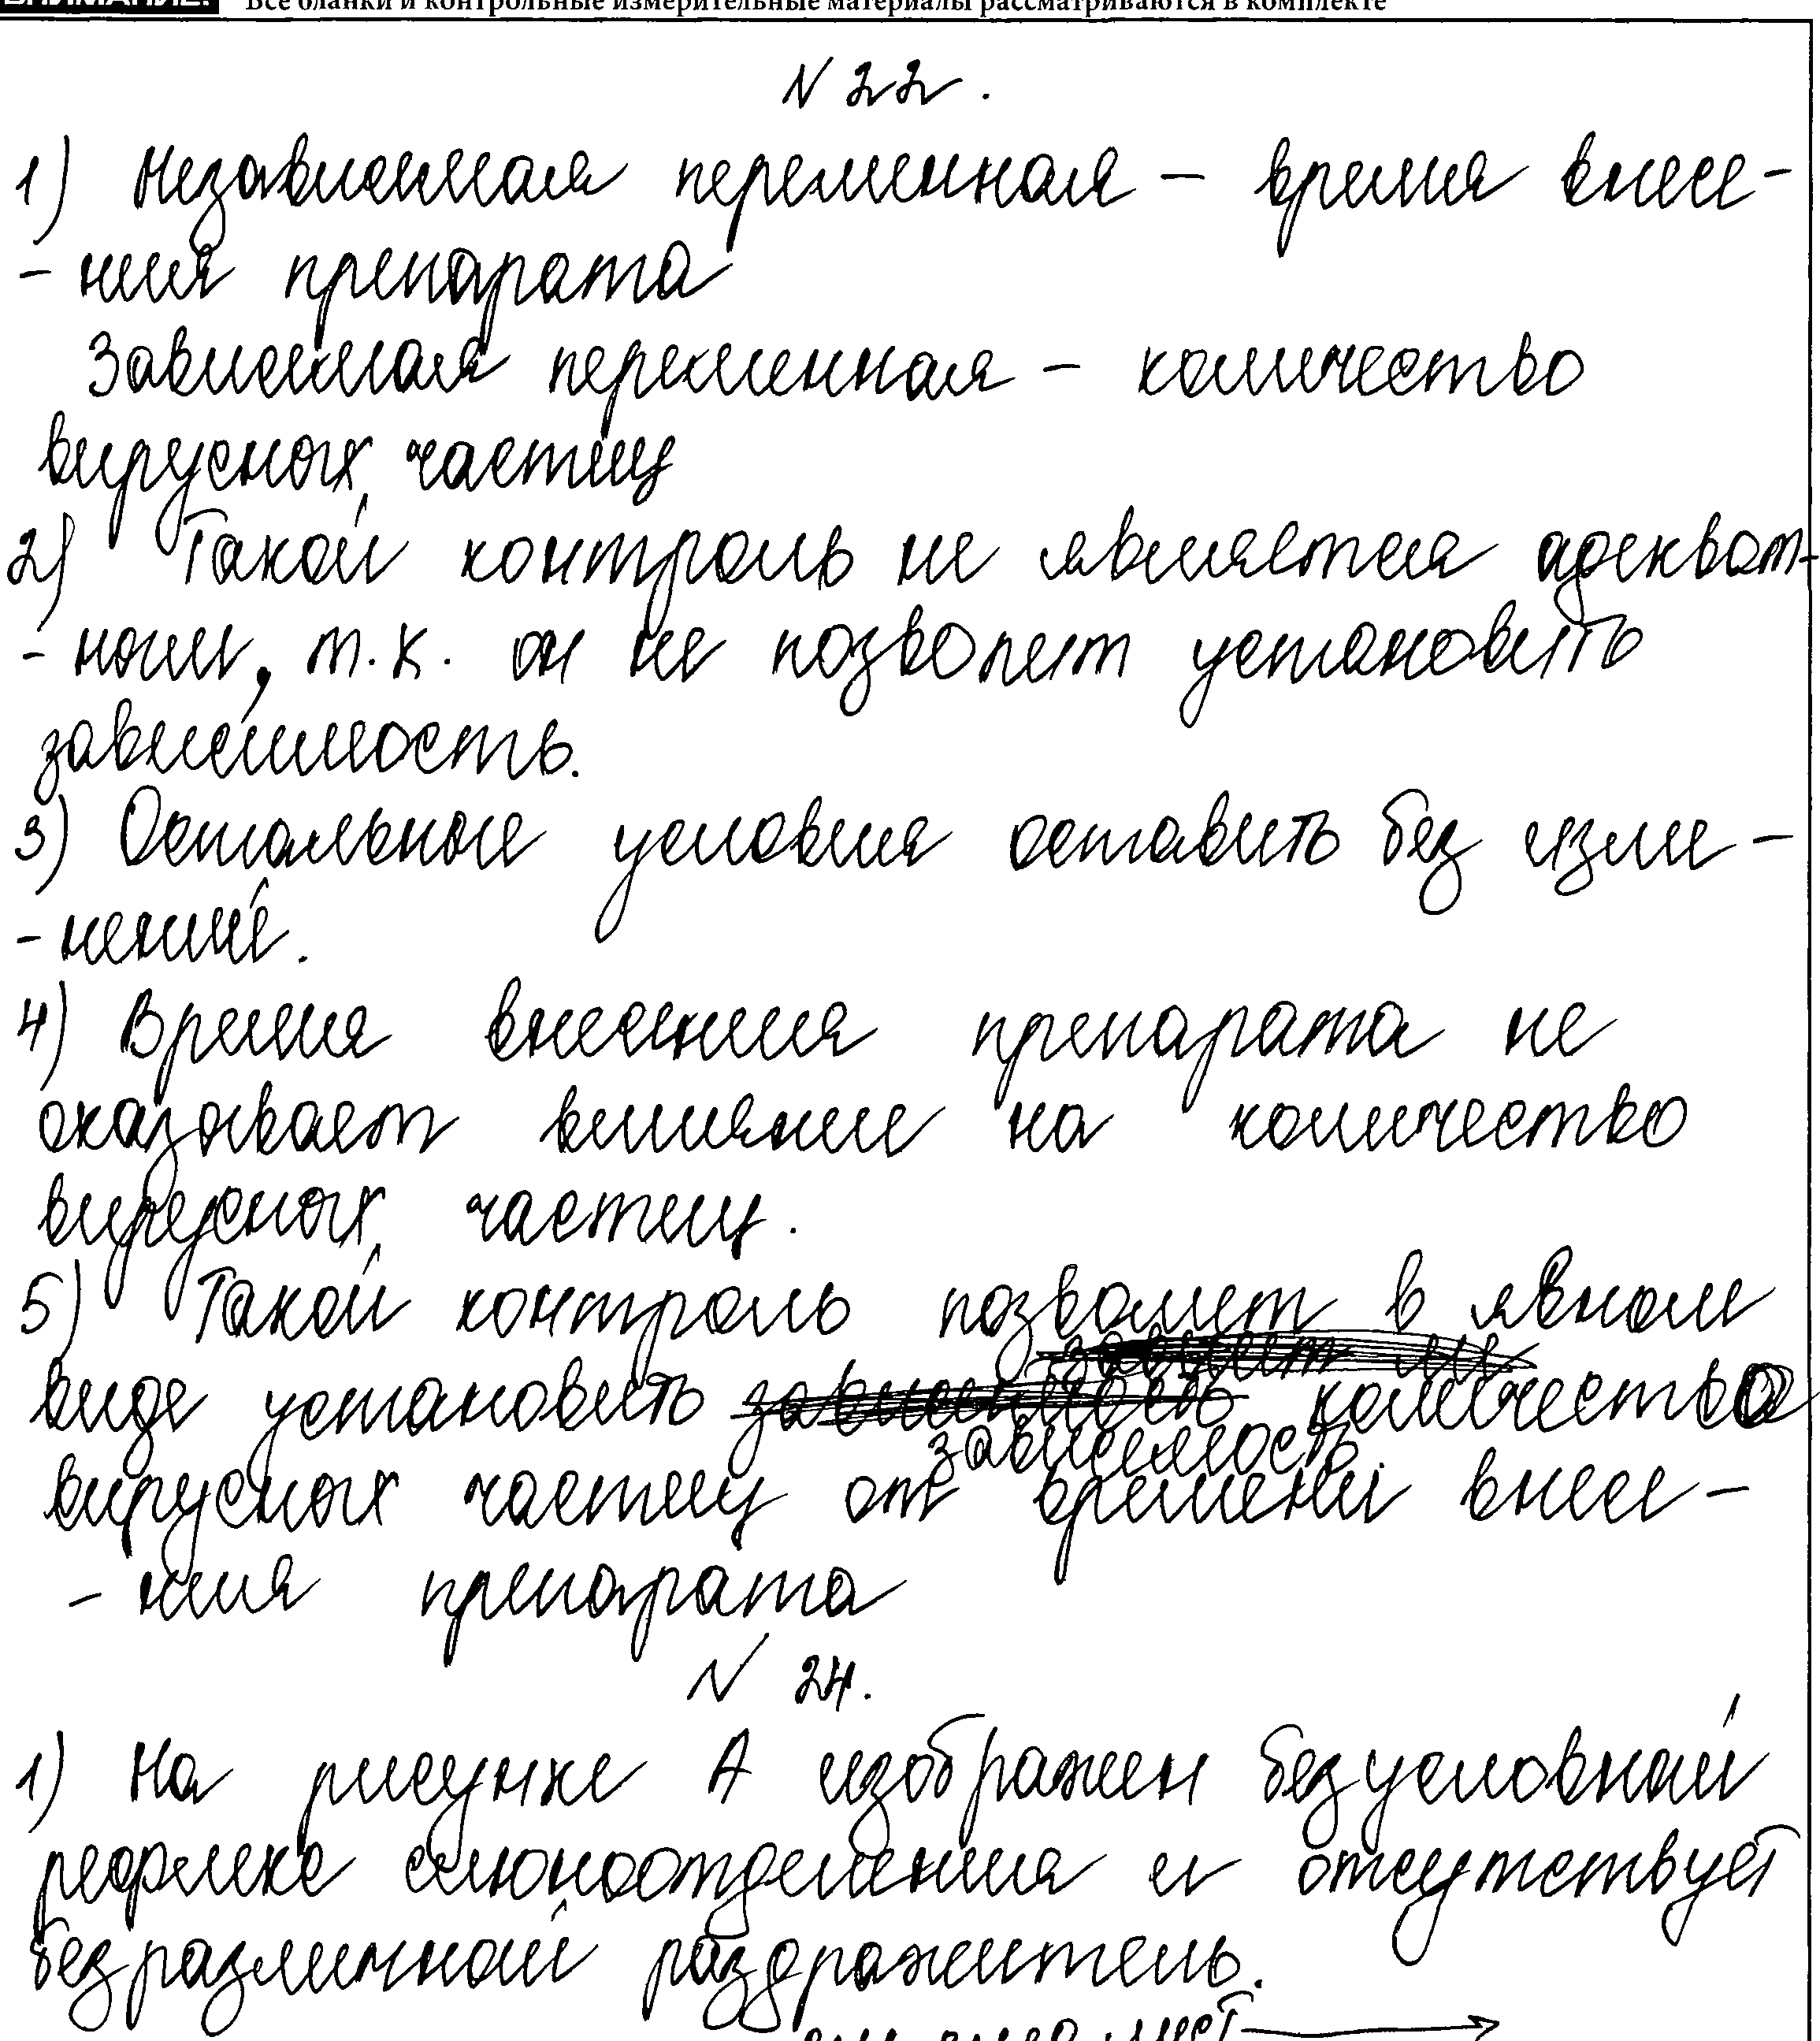 ВНИМАНИЕ! Все бланки и контрольные измерительные материалы рассматриваются в комплекте
N 22.
1) Независимая переменная – время внесе-
- ния препарата
Зависимая переменная – количество
вирусных частиц
2) Такой контроль не является адекват-
- ным, т.к. он не позволит установить
зависимость.
3) Остальные условия оставить без изме-
- нений.
4) Время внесения препарата не
оказывает влияние на количество
вирусных частиц.
5) Такой контроль позволит в явном
виде установить зависимость количество
вирусных частиц от времени внесе-
- ния препарата
N 24.
1) На рисунке А изображен безусловный
рефлекс слюноотделения и отсутствует
безразличный раздражитель.